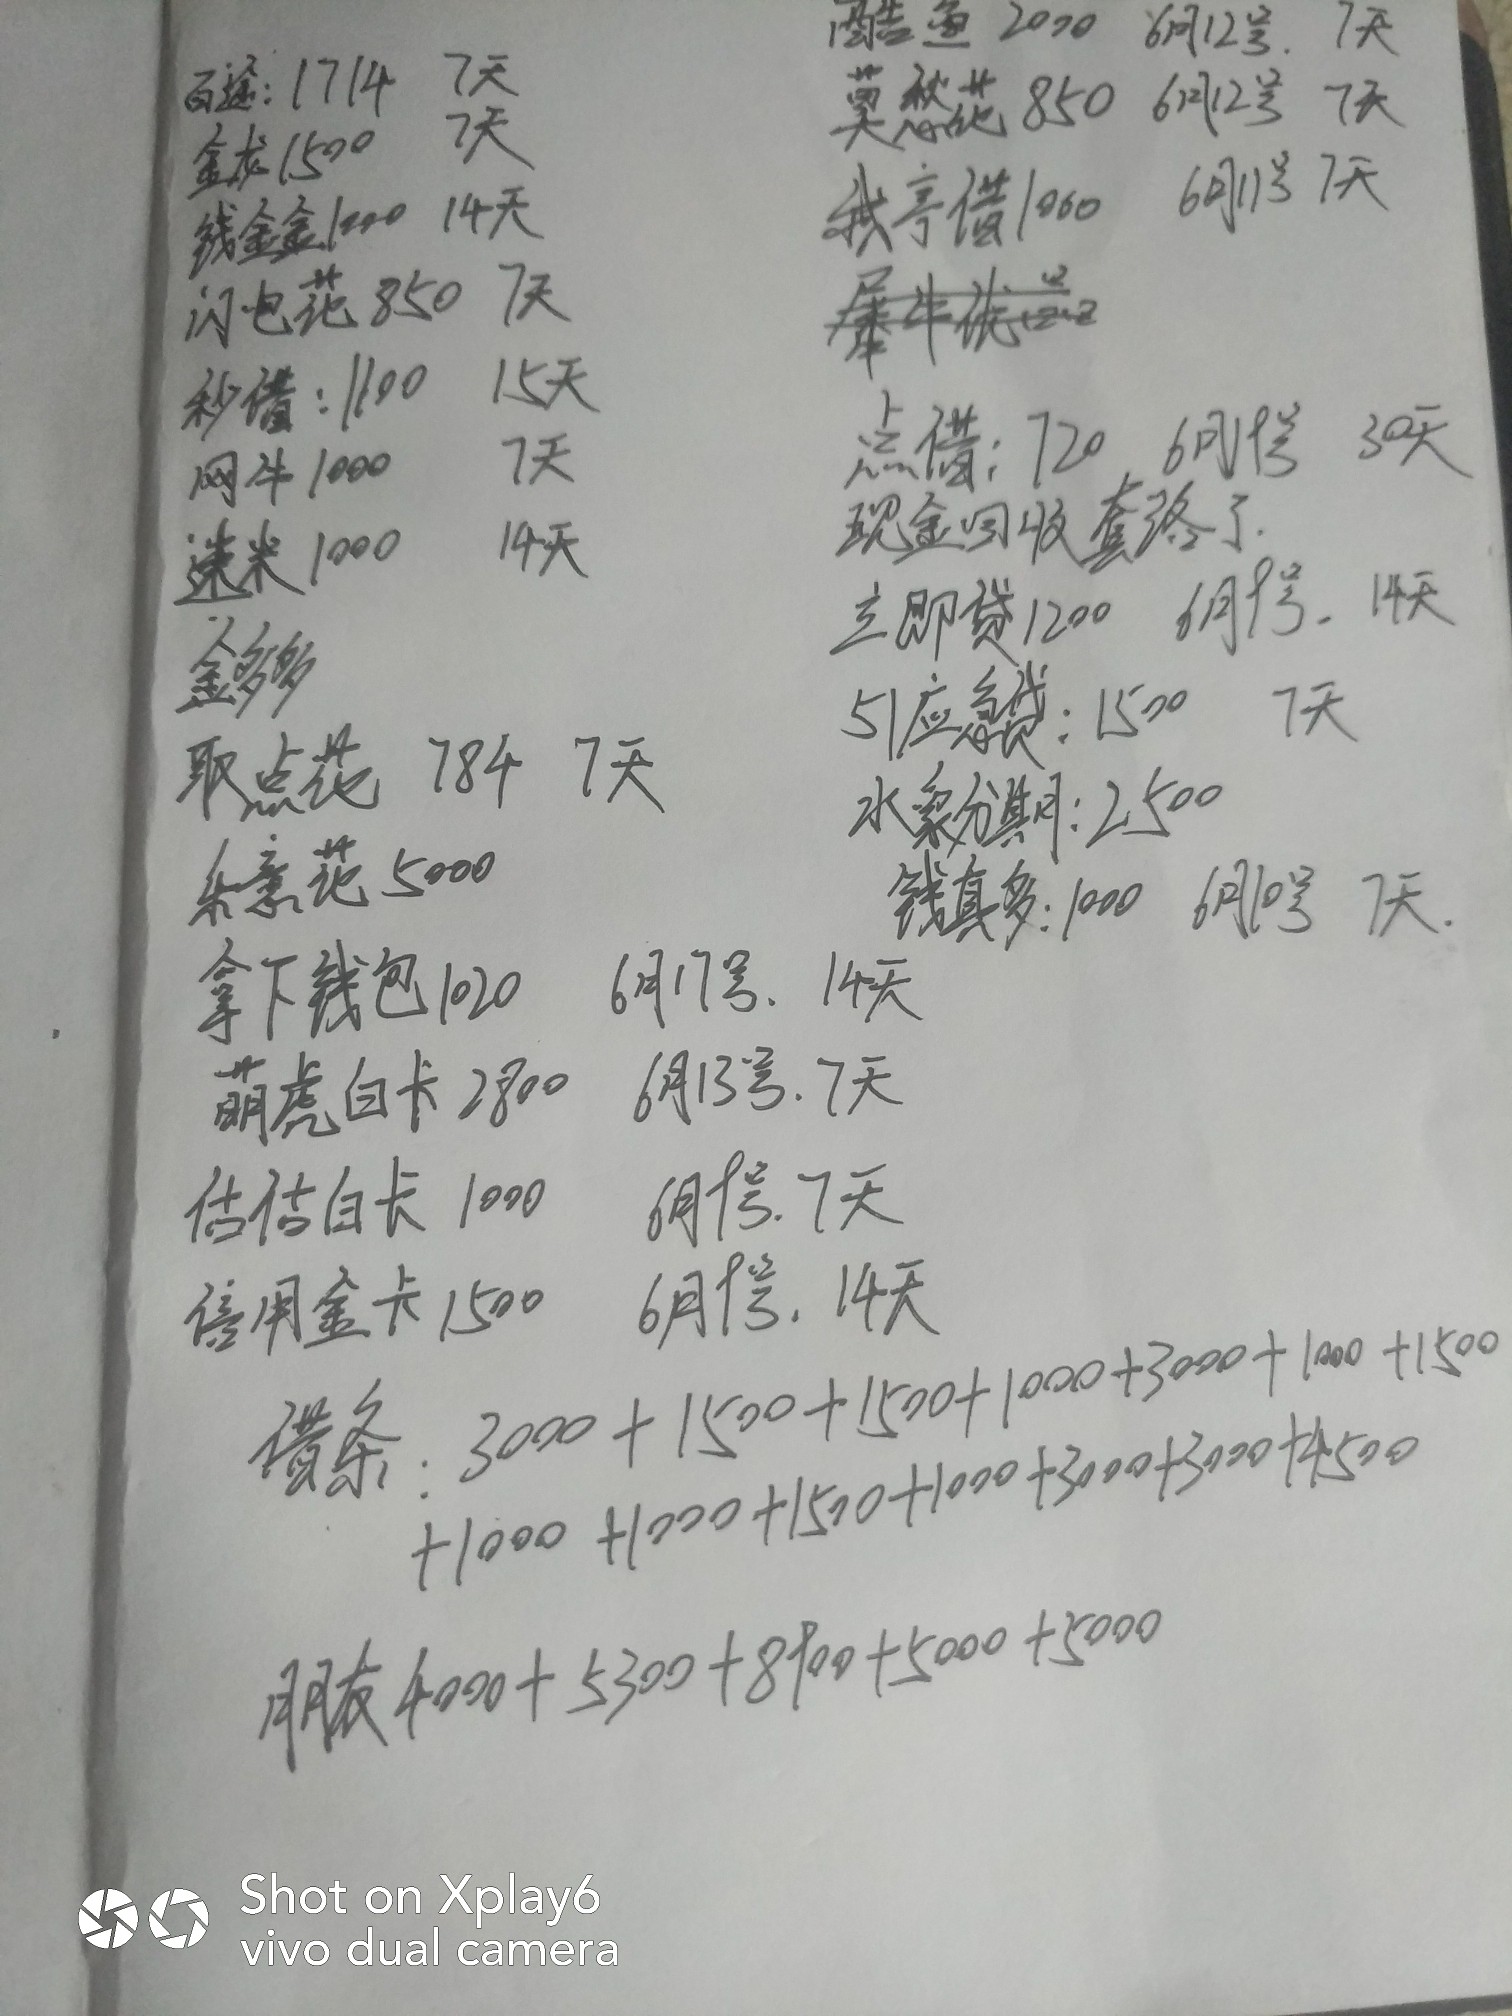 百途：1714 7天
金龙1500 7天
钱金金1000 14天
闪电花850 7天
秒借：1100 15天
网牛1000 7天
速米1000 14天
金多多
取点花 784 7天
乐意花5000
拿下钱包1020 6月17号. 14天
萌虎白卡2800 6月13号. 7天
估估白卡 1000 6月9号. 7天
信用金卡1500 6月9号. 14天
酷鱼 2000 6月12号. 7天
莫愁花850 6月12号 7天
我享借1000 6月11号 7天
犀牛优
点借：720 6月9号 30天
现金回收套路了.
立即贷1200 6月9号. 14天
51应急贷：1500 7天
水象分期：2500
钱真多：1000 6月10号 7天.
借条：3000+1500+1500+1000+3000+1000+1500
+1000+1000+1500+1000+3000+3000+4500
朋友4000+5300+8900+5000+5000
Shot on Xplay6
vivo dual camera